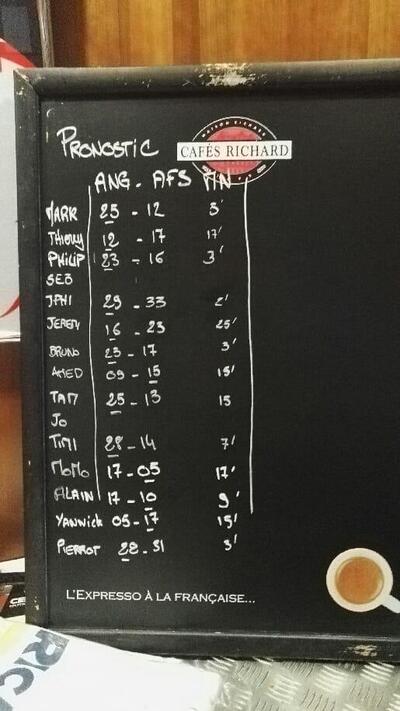 MAISON RICHARD
CAFÉS RICHARD
PRONOSTIC
ANG - AFS MN
MARK 25 - 12 3'
THIERRY 12 - 17 17'
PHILIP 23 - 16 3'
SEB
J.PHI 29 - 33 2'
JEREMY 16 - 23 25'
BRUNO 23 - 17 3'
AMED 09 - 15 15'
TAM 25 - 13 15
JO
TIMI 28 - 14 7'
MOMO 17 - 05 17'
ALAIN 17 - 10 9'
YANNICK 05 - 17 15'
PIERROT 28 - 31 3'
L'EXPRESSO À LA FRANÇAISE...